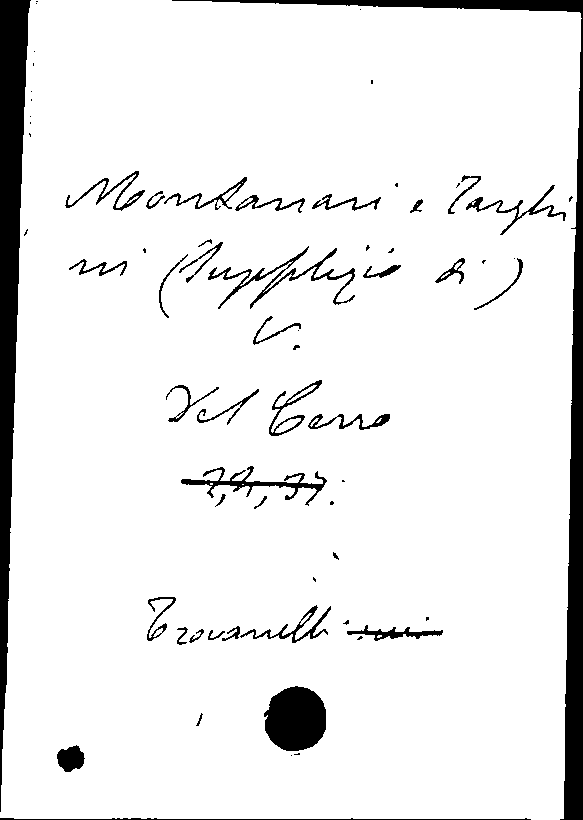 Montanari e Targhi
ni (Supplizio di)
V.
Del Cerro
Trovanelli